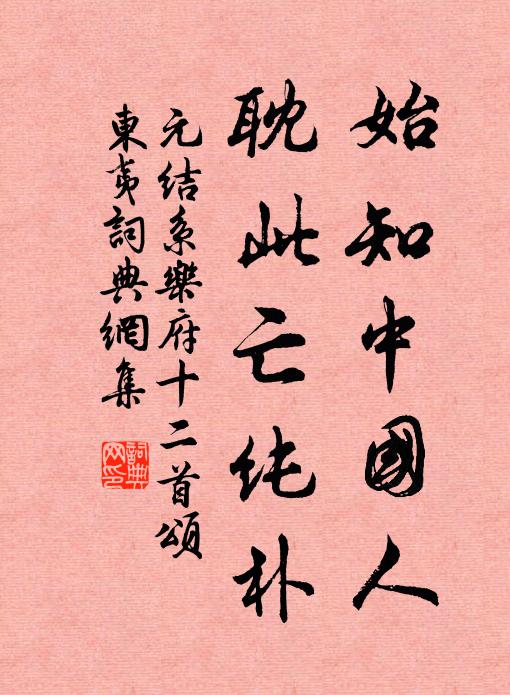 始知中國人
耽此亡纯朴
元结系樂府十二首頌
東夷詞典網集
詞典
网印